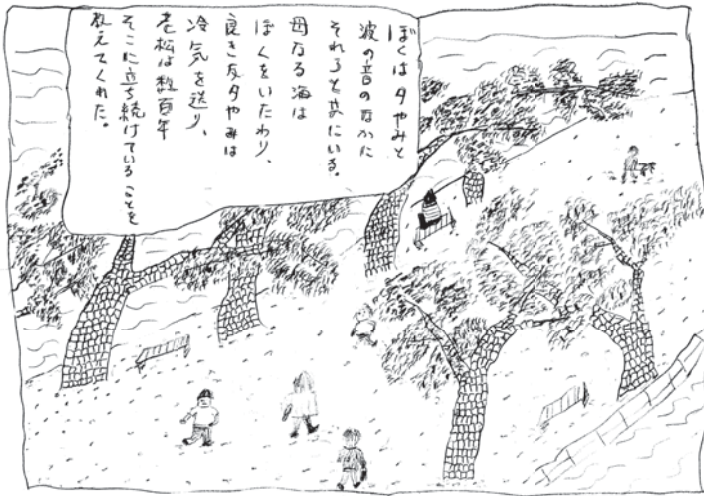 ぼくは夕やみと
波の音のなかに
それらと共にいる。
母なる海は
ぼくをいたわり、
良き友夕やみは
冷気を送り、
老松は数百年
そこに立ち続けていることを
教えてくれた。